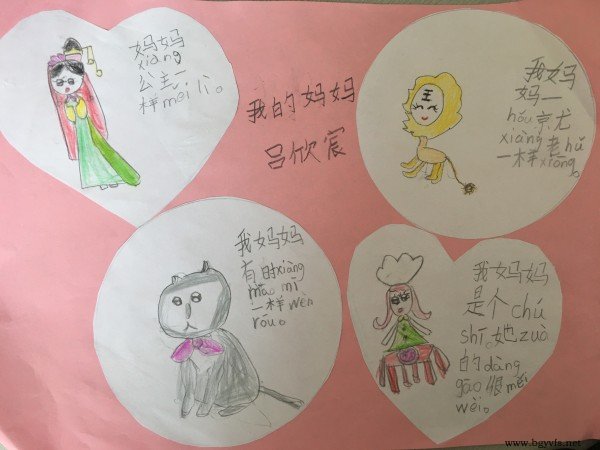 妈妈
xiàng
公主一
样měi lì。
我的妈妈
吕欣宸
我妈
妈一
hǒu京尤
xiàng老hǔ
一样xiōng。
我妈妈
有时xiàng
māo mī
一样wēn
róu。
我妈妈
是个chú
shī。她zuò
的dàn
gāo很měi
wèi。
www.bgyvfs.net